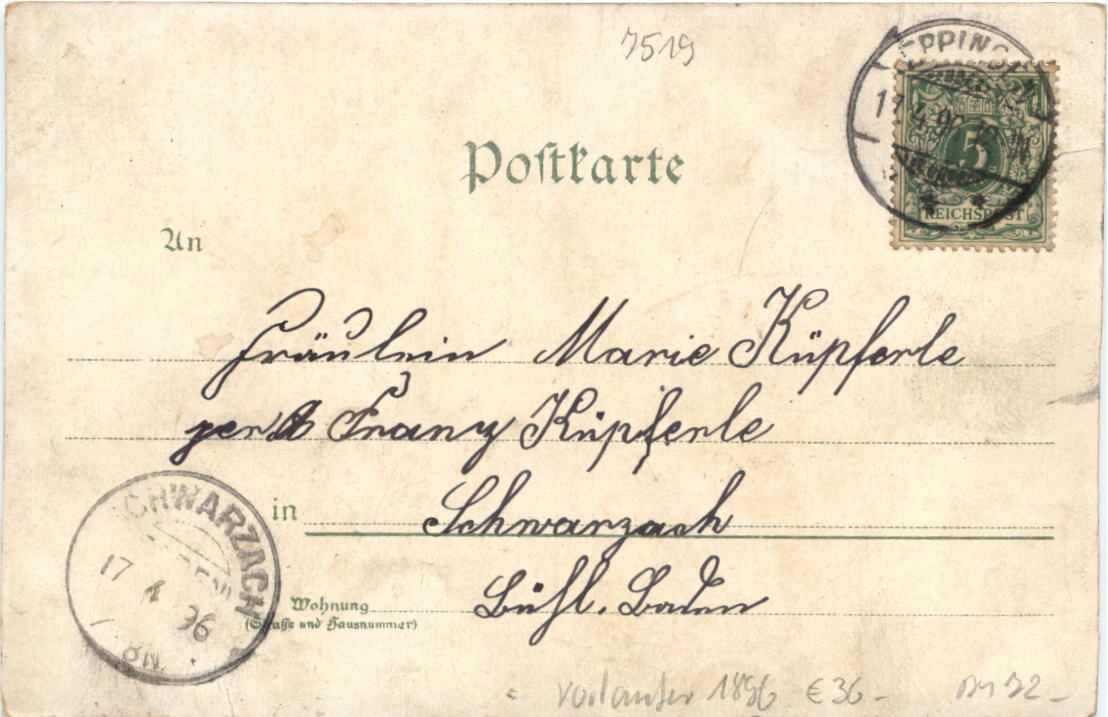 7519
EPPINGEN
17.4.96
5
REICHSPOST
Poſtkarte
An
Fräulein Marie Küpferle
Franz Küpferle
in Schwarzach
Bühl. Baden
Wohnung
(Straſſe und Hausnummer)
SCHWARZACH
17 4 96
8N.
Vorläufer 1896 €36-